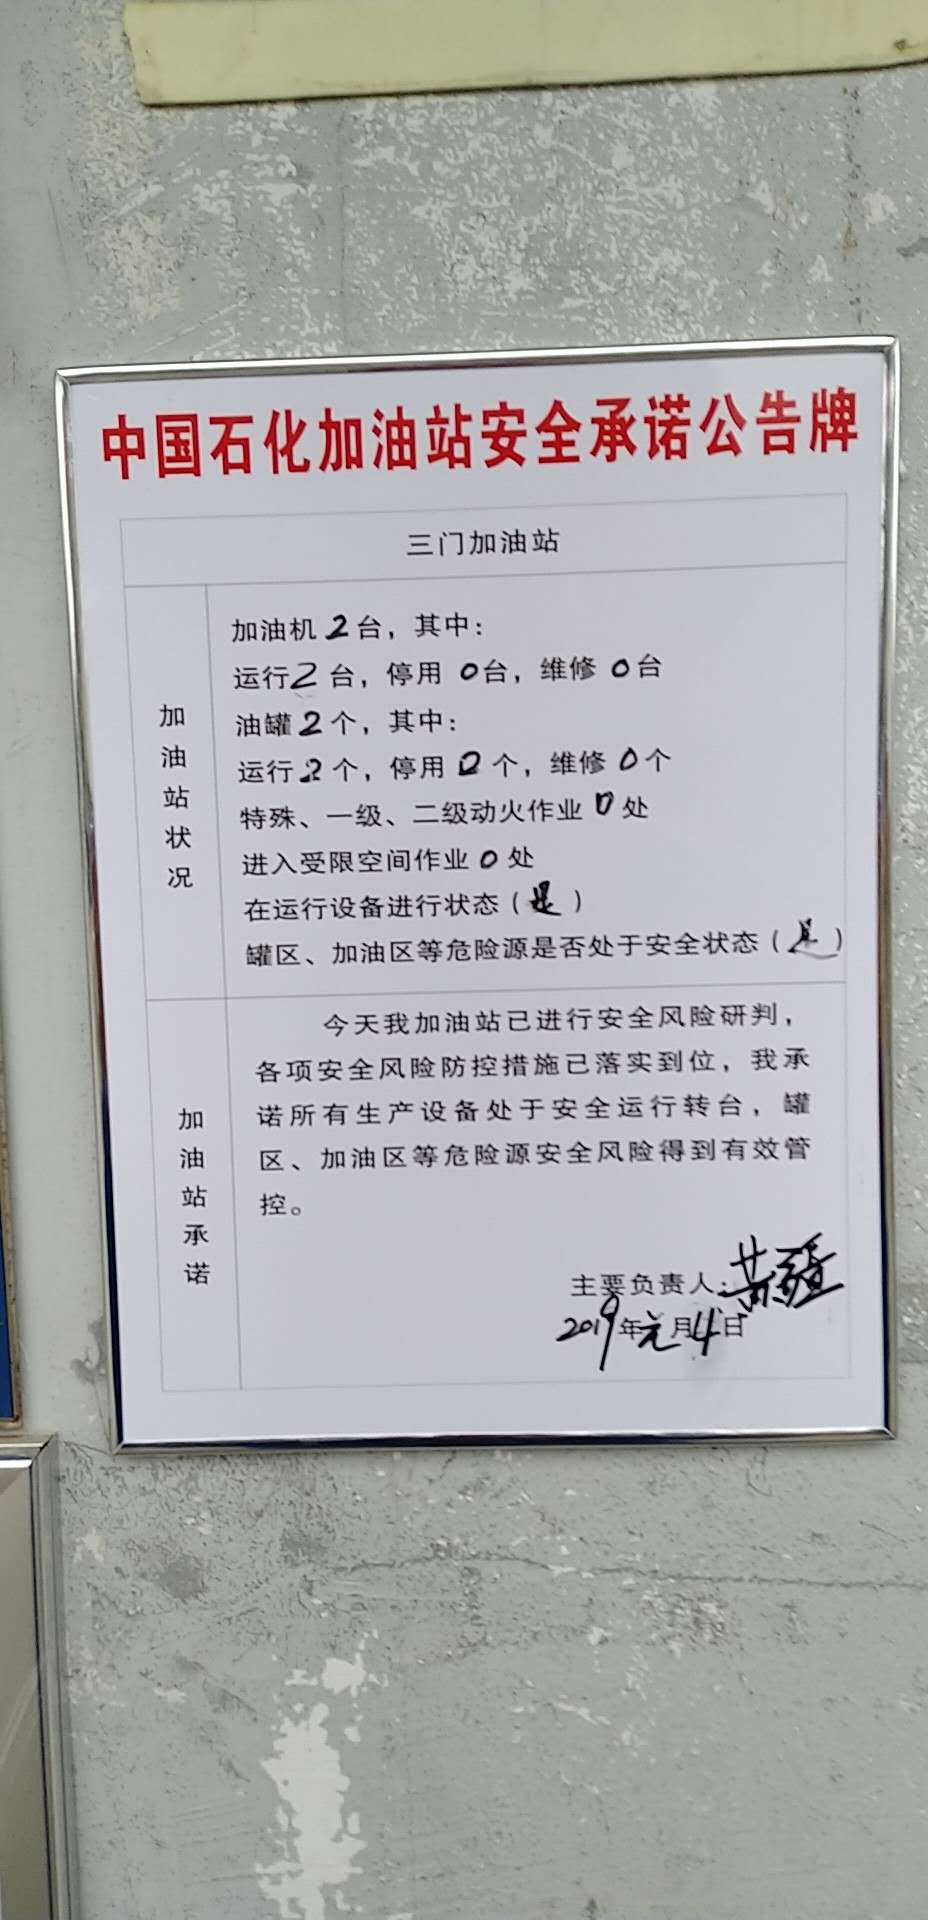 中国石化加油站安全承诺公告牌
三门加油站
加油站状况
加油机 2 台，其中：
运行 2 台，停用 0 台，维修 0 台
油罐 2 个，其中：
运行 2 个，停用 0 个，维修 0 个
特殊、一级、二级动火作业 0 处
进入受限空间作业 0 处
在运行设备进行状态（是）
罐区、加油区等危险源是否处于安全状态（是）
加油站承诺
今天我加油站已进行安全风险研判，
各项安全风险防控措施已落实到位，我承
诺所有生产设备处于安全运行转台，罐
区、加油区等危险源安全风险得到有效管
控。
主要负责人：黄
2019年元月4日